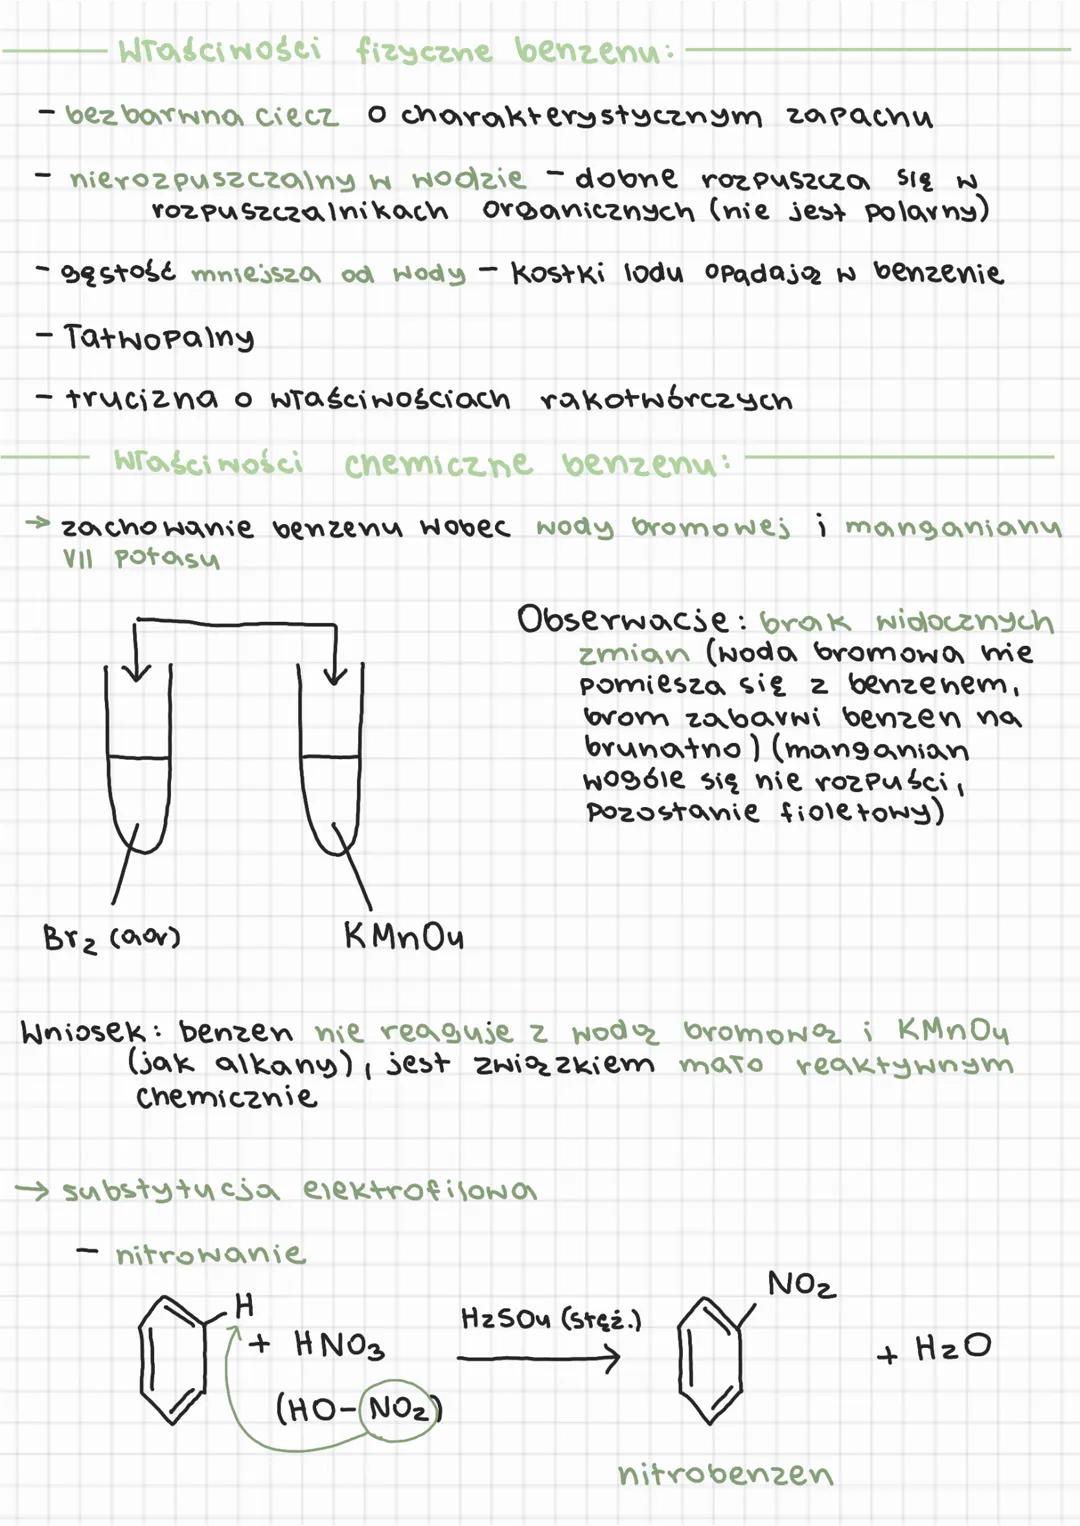 Właściwości fizyczne benzenu:
- bezbarwna ciecz o charakterystycznym zapachu
- nierozpuszczalny w wodzie - dobne rozpuszcza się w
rozpuszczalnikach organicznych (nie jest polarny)
- gęstość mniejsza od wody - kostki lodu opadają w benzenie
- łatwopalny
- trucizna o właściwościach rakotwórczych
Właściwości chemiczne benzenu:
→ zachowanie benzenu wobec wody bromowej i manganianu
VII potasu
Obserwacje: brak widocznych
zmian (woda bromowa nie
pomiesza się z benzenem,
brom zabarwi benzen na
brunatno) (manganian
wogóle się nie rozpuści,
pozostanie fioletowy)
Br₂ (aq)
KMnO₄
Wniosek: benzen nie reaguje z wodą bromową i KMnO₄
(jak alkany), jest związkiem mało reaktywnym
chemicznie
→ substytucja elektrofilowa
- nitrowanie
H + HNO₃
(HO-NO₂)
H₂SO₄ (stęż.)
NO₂
+ H₂O
nitrobenzen